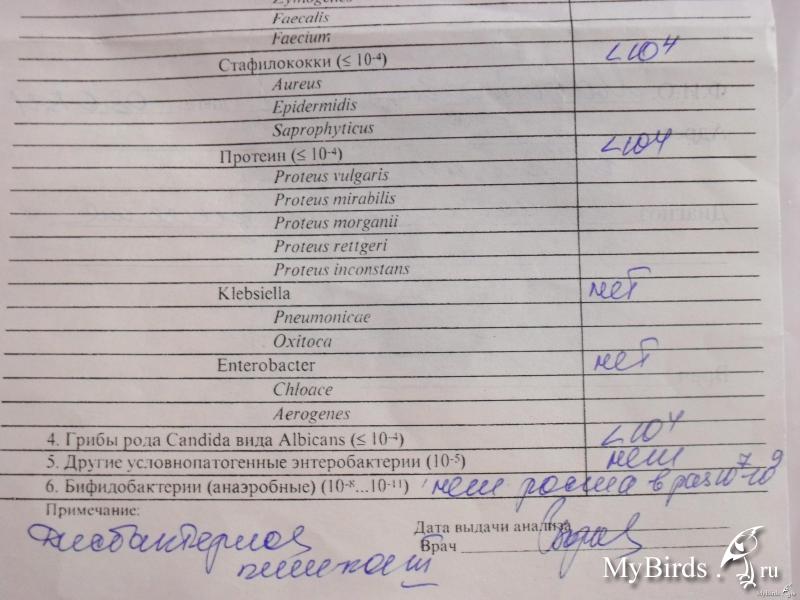 Zymogenes
Faecalis
Faecium
Стафилококки (≤ 10⁻⁴) <10⁴
Aureus
Epidermidis
Saprophyticus
Протеин (≤ 10⁻⁴) <10⁴
Proteus vulgaris
Proteus mirabilis
Proteus morganii
Proteus rettgeri
Proteus inconstans
Klebsiella нет
Pneumonicae
Oxitoca
Enterobacter нет
Chloace
Aerogenes
4. Грибы рода Candida вида Albicans (≤ 10⁻⁴) <10⁴
5. Другие условнопатогенные энтеробактерии (10⁻⁵) нет
6. Бифидобактерии (анаэробные) (10⁻⁸...10⁻¹¹) нет роста в раз 10⁷-10⁹
Примечание:
Дисбактериоз
Дата выдачи анализа
Врач
MyBirds.ru